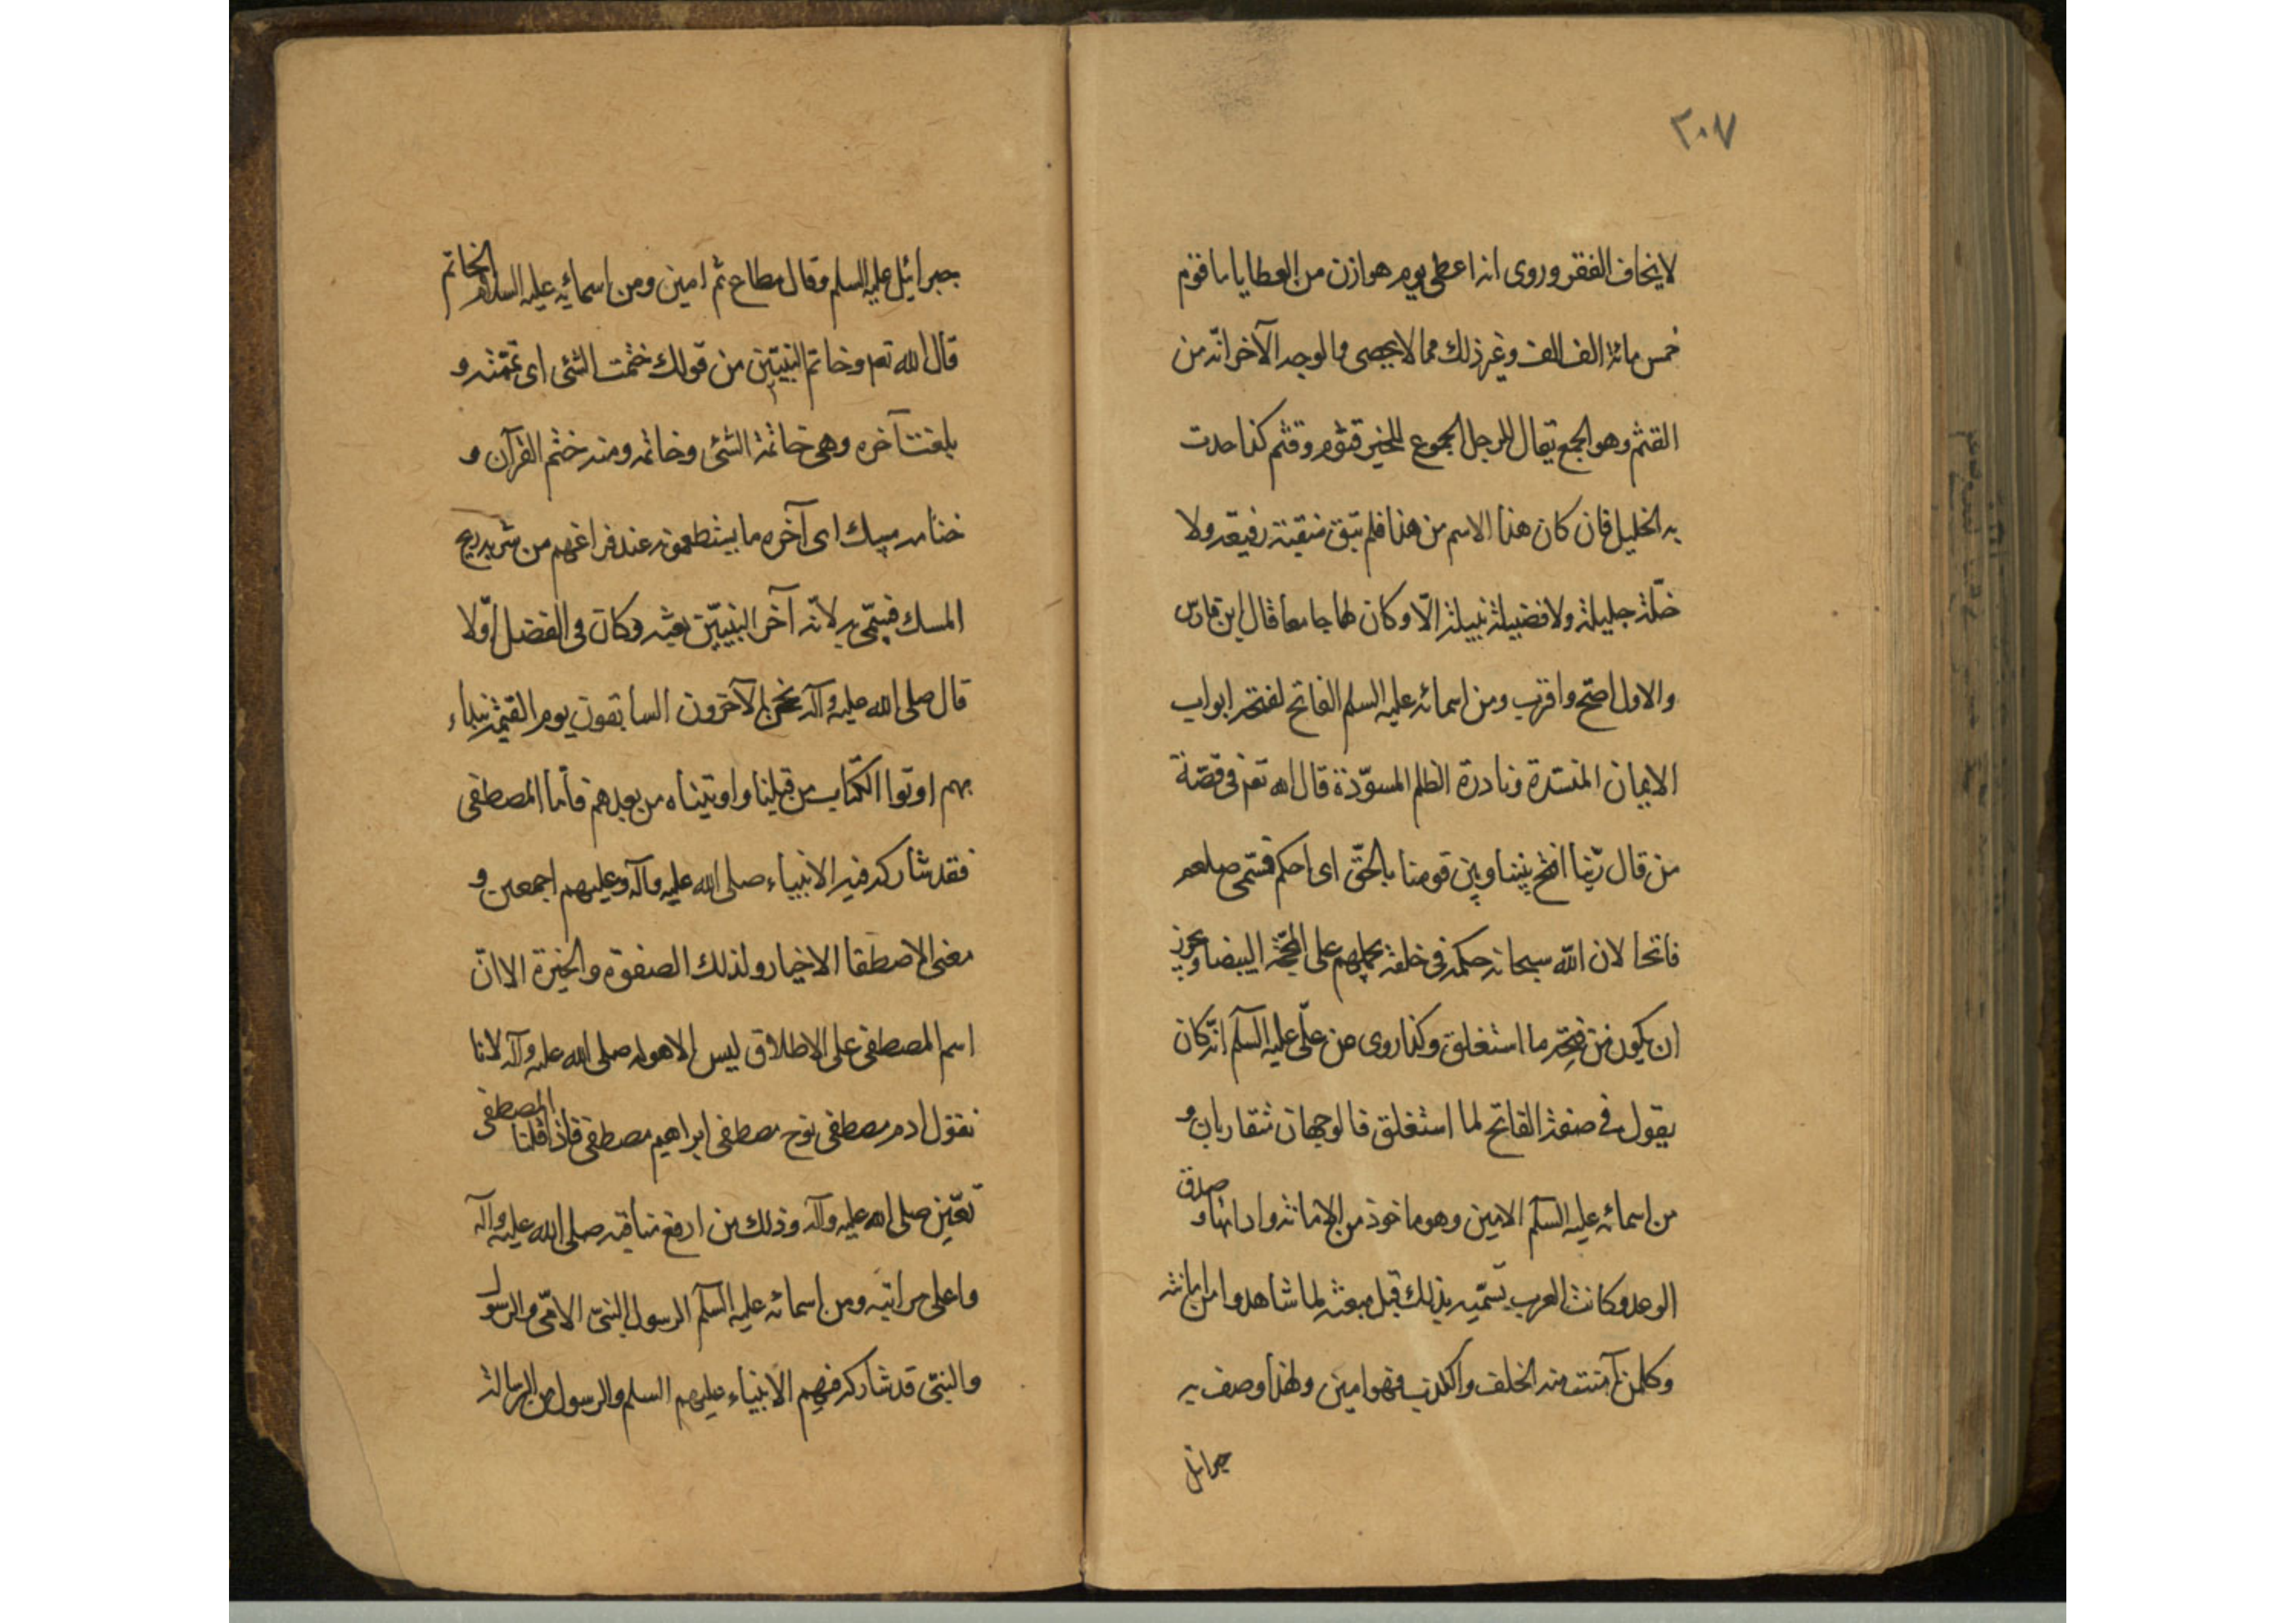 ٢٠٧
لا يخاف الفقر وروى انه اعطى يوم هوازن من العطايا ما قوّم
خمس مائة الف الف وغير ذلك مما لا يحصى والوجه الآخر انّه من
القثم وهو الجمع يقال للرجل الجموع للخير قثوم وقثم كذا حدث
به الخليل فان كان هذا الاسم من هذا فلم تبق منقبة رفيعة ولا
خلّة جليلة ولا فضيلة نبيلة الّا وكان لها جامعا قال ابن فارس
والاول اصح واقرب ومن اسمائه عليه السلم الفاتح لفتحه ابواب
الايمان المنسدة وناد رة الظلم المسوّدة قال الله تعم فى قصّة
من قال ربّنا افتح بيننا وبين قومنا بالحقّ اى احكم فسمّى صلعم
فاتحا لان الله سبحانه حكمه فى خلقه يحملهم على المحجّة البيضاء ويجوز
ان يكون من فتحه ما استغلق وكذا روى عن علىّ عليه السّلم انّه كان
يقول فى صفة الفاتح لما استغلق فالوجهان متقاربان و
من اسمائه عليه السّلم الامين وهو ماخوذ من الامانة وادائها وصدق
الوعد وكانت العرب تسمّيه بذلك قبل مبعثه لما شاهدوا من امانته
وكلمن آمنت منه الخلف والكذب فهو امين ولهذا وصف به
جبرائيل
جبرائيل عليه السلم وقال مطاع ثم امين ومن اسمائه عليه السلام الخاتم
قال الله تعم وخاتم النبيّين من قولك ختمت الشئ اى تمّمته و
بلغت آخره وهى خاتمة الشئ وخاتمه ومنه ختم القرآن و
ختامه مسك اى آخره ما يستطعمونه عند فراغهم من شربه ريح
المسك فسمّى به لانّه آخر النبيّين بعثه وكان فى الفضل اوّلا
قال صلى الله عليه وآله نحن الآخرون السابقون يوم القيمة بيد
بهم اوتوا الكتاب من قبلنا واوتيناه من بعدهم فأما المصطفى
فقد شاركه فيه الانبياء صلى الله عليه وآله وعليهم اجمعين و
معنى الاصطفا الاخيار ولذلك الصفوة والخيرة الا انّ
اسم المصطفى على الاطلاق ليس الا هو له صلى الله عليه وآله لانا
نقول ادم مصطفى نوح مصطفى ابراهيم مصطفى فاذا قلنا المصطفى
تعيّن صلى الله عليه وآله وذلك من ارفع مناقبه صلى الله عليه وآله
واعلى مراتبه ومن اسمائه عليه السّلم الرسول النبىّ الامّى والرسول
والنبىّ قد شاركه فيهم الانبياء عليهم السلم والرسول من الرسالة